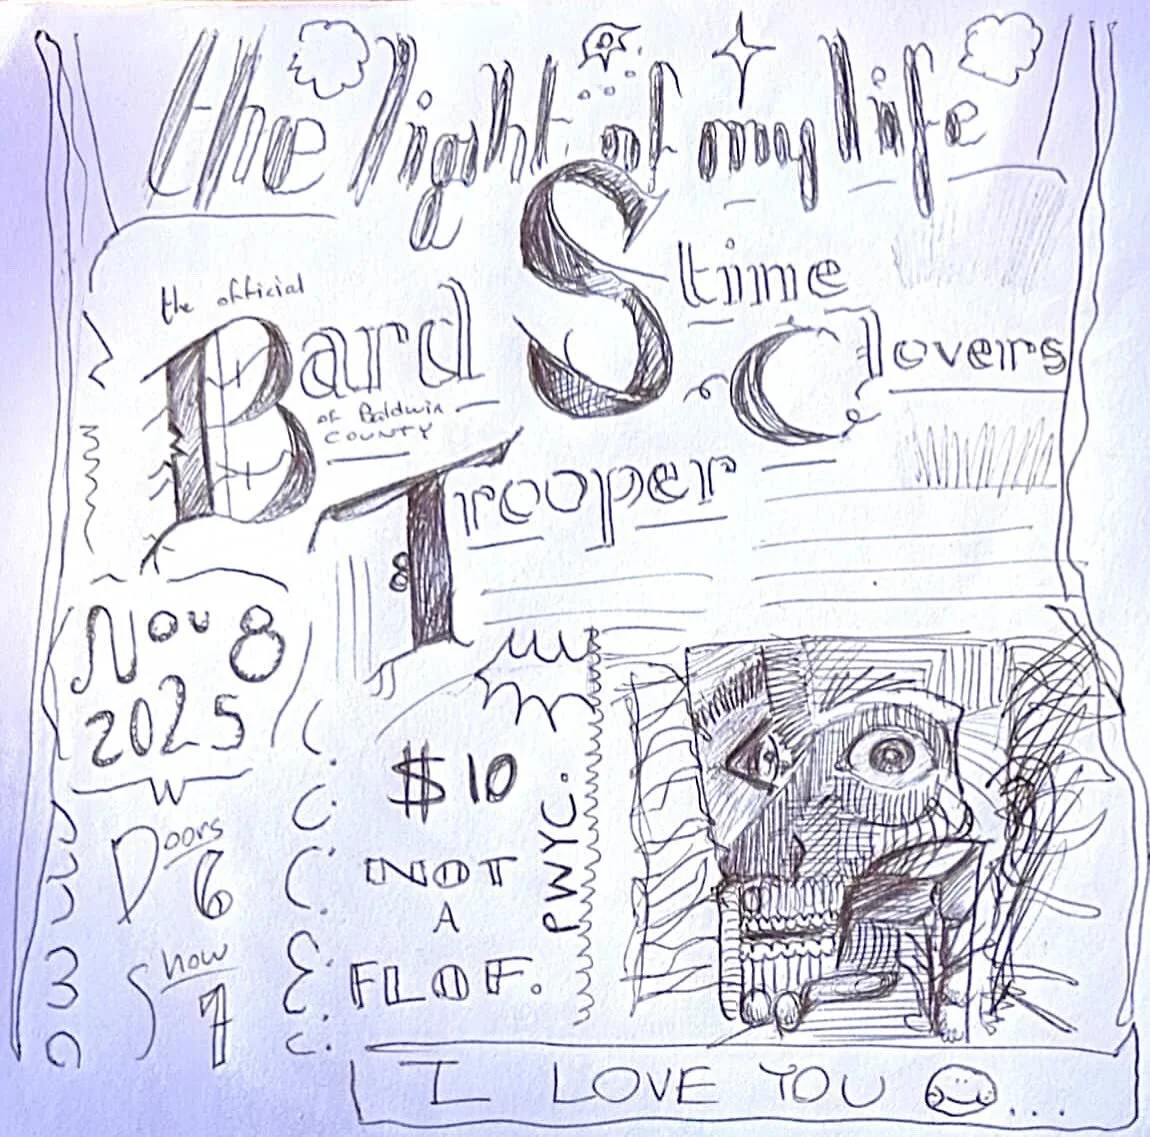 the light of my life
Stime
Clovers
the official
Bard
of Baldwin
COUNTY
Trooper
Nov 8
2025
Doors
6
Show
7
$10
PWYC.
NOT
A
FLOF.
I LOVE YOU